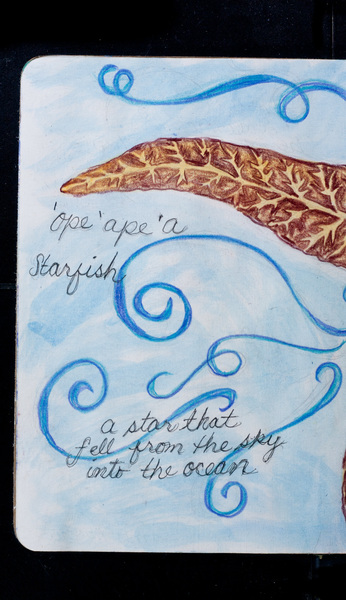 'ope'ape'a
Starfish
a star that
fell from the sky
into the ocean